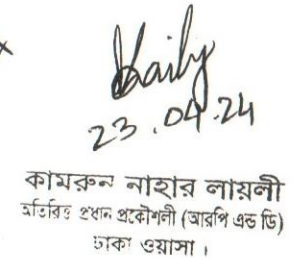 23.04.24
কামরুন নাহার লায়লী
অতিরিক্ত প্রধান প্রকৌশলী (আরপি এন্ড ডি)
ঢাকা ওয়াসা।